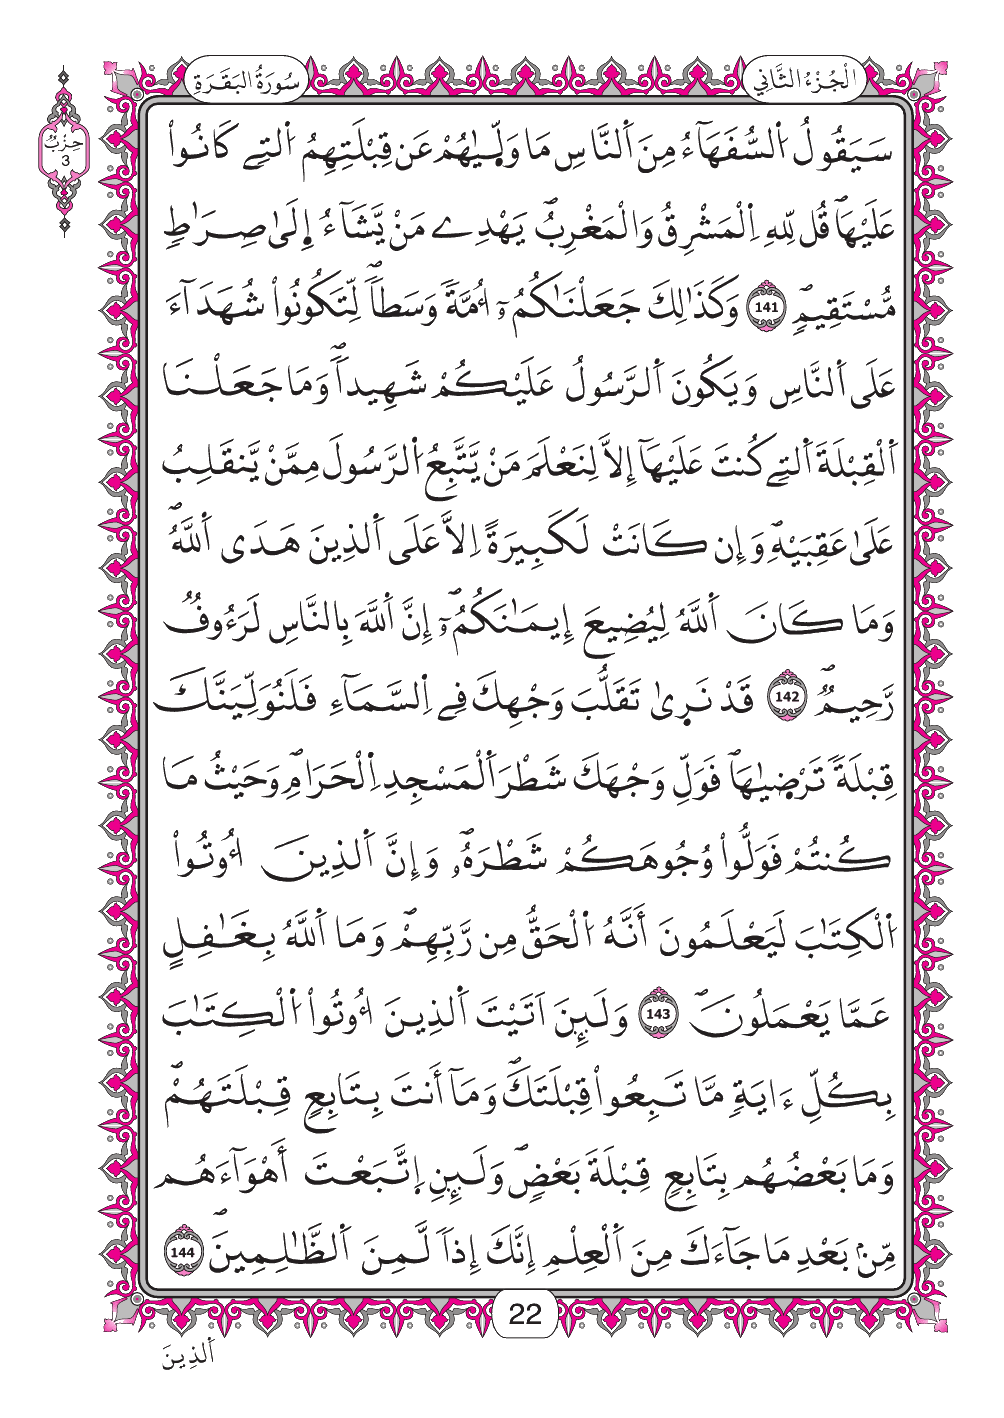 الْجُزْءُ الثَّانِي
سُورَةُ البَقَرَةِ
حِزْبٌ
3
سَيَقُولُ اُ۬لسُّفَهَآءُ مِنَ اَ۬لنَّاسِ مَا وَلّ۪يٰهُمْ عَن قِبْلَتِهِمُ اُ۬لتِے كَانُواْ
عَلَيْهَاۖ قُل لِّلهِ اِ۬لْمَشْرِقُ وَالْمَغْرِبُۖ يَهْدِے مَنْ يَّشَآءُ اِ۪لَىٰ صِرَٰطٖ
مُّسْتَقِيمٖۖ 141 وَكَذَٰلِكَ جَعَلْنَٰكُمُۥٓ أُمَّةٗ وَسَطاٗۖ لِّتَكُونُواْ شُهَدَآءَ
عَلَى اَ۬لنَّاسِ وَيَكُونَ اَ۬لرَّسُولُ عَلَيْكُمْ شَهِيداٗۖ وَمَا جَعَلْنَا
اَ۬لْقِبْلَةَ اَ۬لتِے كُنتَ عَلَيْهَآ إِلَّا لِنَعْلَمَ مَنْ يَّتَّبِعُ اُ۬لرَّسُولَ مِمَّنْ يَّنقَلِبُ
عَلَىٰ عَقِبَيْهِۖ وَإِن كَانَتْ لَكَبِيرَةً اِلَّا عَلَى اَ۬لذِينَ هَدَى اَ۬للَّهُۖ
وَمَا كَانَ اَ۬للَّهُ لِيُضِيعَ إِيمَٰنَكُمُۥٓۖ إِنَّ اَ۬للَّهَ بِالنَّاسِ لَرَءُوفٞ
رَّحِيمٞۖ 142 قَدْ نَر۪ىٰ تَقَلُّبَ وَجْهِكَ فِے اِ۬لسَّمَآءِ فَلَنُوَلِّيَنَّكَ
قِبْلَةٗ تَرْض۪يٰهَاۖ فَوَلِّ وَجْهَكَ شَطْرَ اَ۬لْمَسْجِدِ اِ۬لْحَرَامِۖ وَحَيْثُ مَا
كُنتُمْ فَوَلُّواْ وُجُوهَكُمْ شَطْرَهُۥۖ وَإِنَّ اَ۬لذِينَ أُوتُواْ
اُ۬لْكِتَٰبَ لَيَعْلَمُونَ أَنَّهُ اُ۬لْحَقُّ مِن رَّبِّهِمْۖ وَمَا اَ۬للَّهُ بِغَٰفِلٍ
عَمَّا يَعْمَلُونَۖ 143 وَلَئِنَ اَتَيْتَ اَ۬لذِينَ أُوتُواْ اُ۬لْكِتَٰبَ
بِكُلِّ ءَايَةٖ مَّا تَبِعُواْ قِبْلَتَكَۖ وَمَآ أَنتَ بِتَابِعٖ قِبْلَتَهُمْۖ
وَمَا بَعْضُهُم بِتَابِعٖ قِبْلَةَ بَعْضٖۖ وَلَئِنِ اِ۪تَّبَعْتَ أَهْوَآءَهُم
مِّنۢ بَعْدِ مَا جَآءَكَ مِنَ اَ۬لْعِلْمِ إِنَّكَ إِذاٗ لَّمِنَ اَ۬لظَّٰلِمِينَۖ 144
22
اَ۬لذِينَ